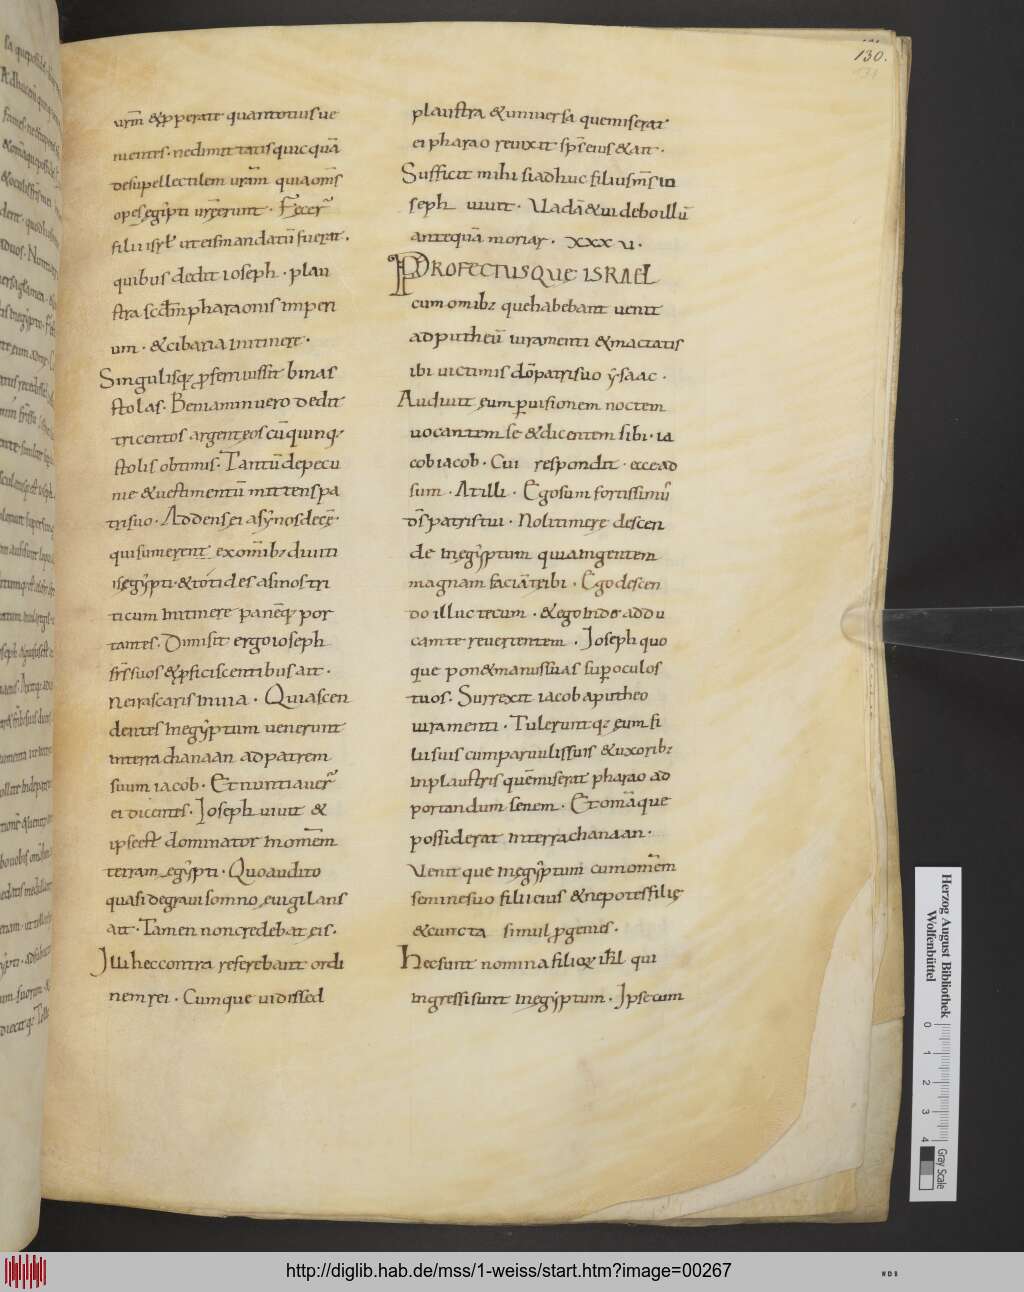 130.
urm̄ & pperate quantotius ue
nientes · nedimittatis quicquā
desupellectilem uram̄ quia om̄s
opes egipti urē erunt · Fecer̄
filii isrł ut eis mandatū fuerat ·
quibus dedit ioseph · plau
stra scd̄m pharaonis imperi
um · & cibaria initinere ·
Singulisqꝫ proferri iussit binas
stolas · Beniamin uero dedit
tricentos argenteos cū quinqꝫ
stolis obtimis · Tantū de pecu
nie & uestimentū mittens pa
tri suo · Addens ei asynos decē ·
qui sumerent ex om̄ibꝫ diuiti
is egypti · & totides asinos tri
ticum in itinere panēq̄ por
tantes · Dimisit ergo ioseph
fr̄s suos & pficiscentibus ait ·
Ne irascaris in uia · Qui ascen
dentes in egyptum uenerunt
in terra chanaan ad patrem
suum iacob · Et nuntiauer̄
ei dicentes · Ioseph uiuit &
ipse est dominator in om̄em
terram egypti · Quo audito
quasi de graui somno euigilans
ait · Tamen non credebat eis ·
Illi hec contra referebant ordi
nem rei · Cumque uidissed
plaustra & uniuersa que miserat
ei pharao reuixit sp̄s eius & ait ·
Sufficit mihi si adhuc filius m̄s io
seph uiuit · Uadā & uidebo illū
antequā moriar · xxx vi ·
PROFECTUSQUE ISRAEL
cum omibꝫ que habebant uenit
ad putheū iuramenti & mactatis
ibi uictimis dō patri suo ysaac ·
Audiuit eum p uisionem noctem
uocantem se & dicentem sibi · ia
cob iacob · Cui respondit · ecce ad
sum · At illi · Ego sum fortissimus
ds̄ patris tui · Noli timere descen
de in egyptum quia in gentem
magnam faciā te ibi · Ego descen
do illuc tecum · & ego inde addu
cam te reuertentem · Ioseph quo
que pon& manus suas sup oculos
tuos · Surrexit iacob a putheo
iuramenti · Tuleruntqꝫ eum fi
lii suis cum paruulis suis & uxoribꝫ
in plaustris quē miserat pharao ad
portandum senem · Et omā que
possiderat in terra chanaan ·
Uenit que in egyptum cum om̄em
semine suo filii eius & nepotes filię
& cuncta simul pgenies ·
Hec sunt nomina filioꝝ isr̄l qui
ingressi sunt in egyptum · Ipse cum
Herzog August Bibliothek
Wolfenbüttel
0 1 2 3 4
Gray Scale
http://diglib.hab.de/mss/1-weiss/start.htm?image=00267